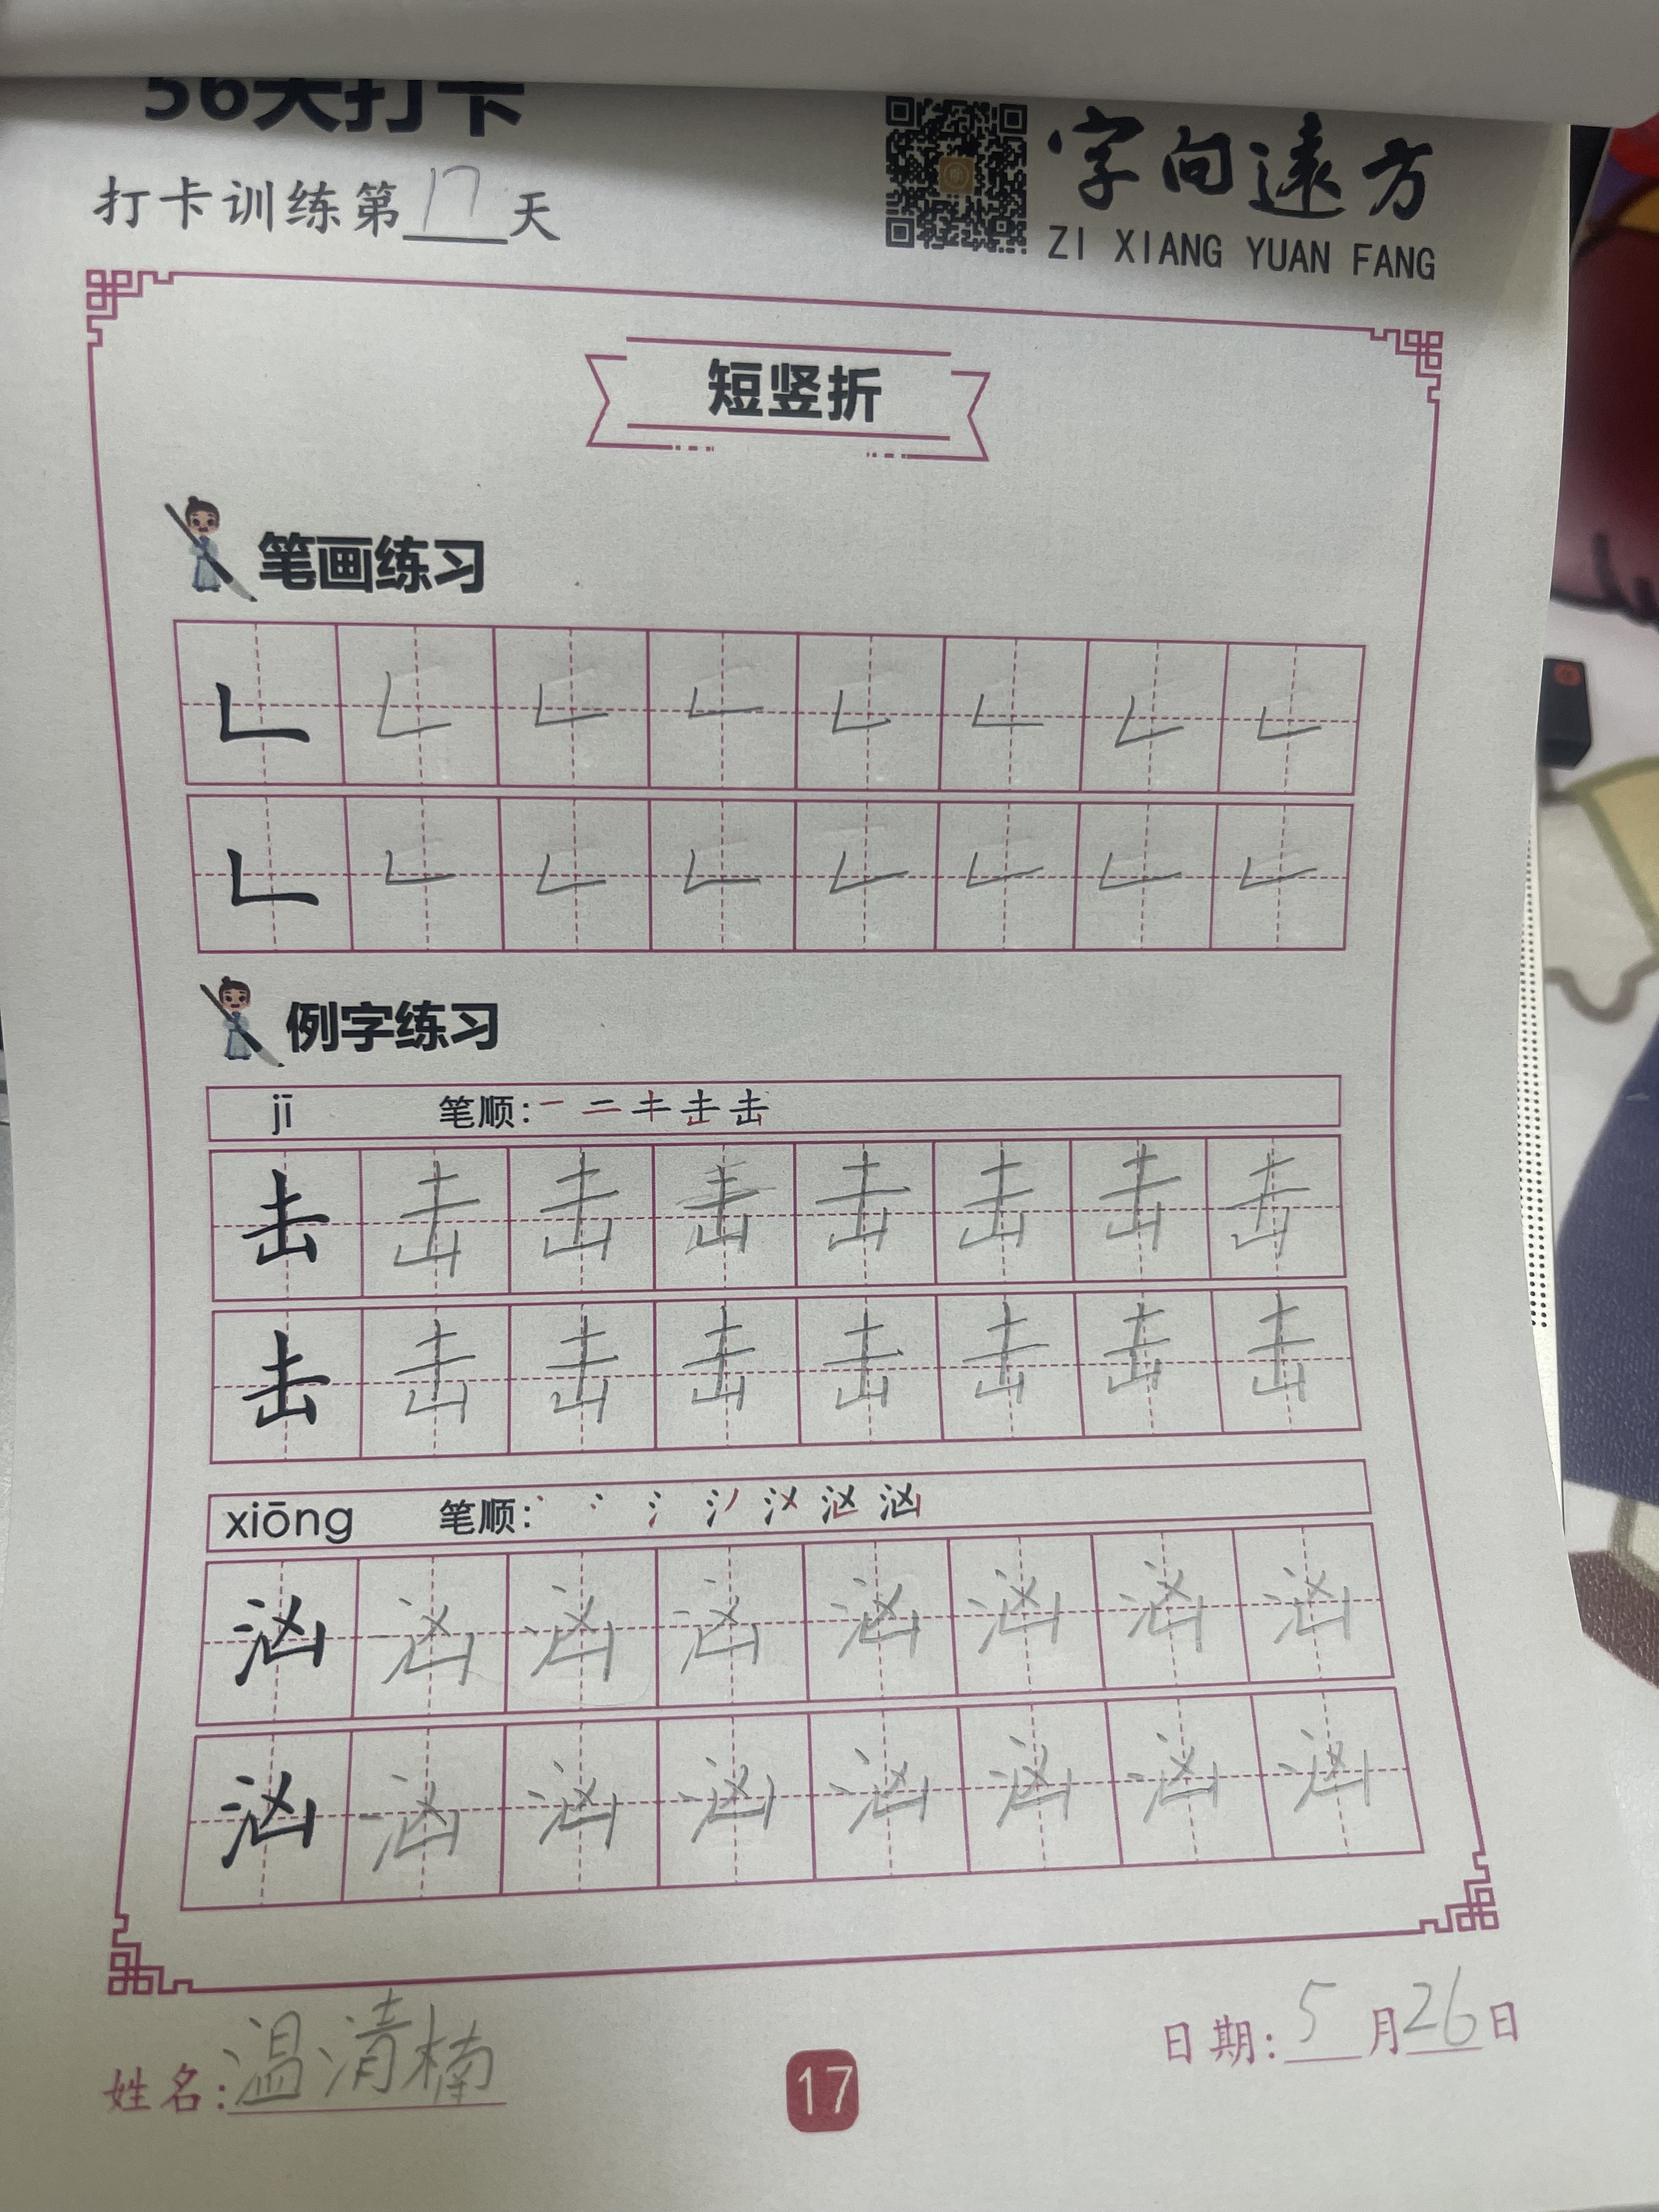 56天打卡
打卡训练第17天
字向遠方
ZI XIANG YUAN FANG
短竖折
笔画练习
𠃊 𠃊 𠃊 𠃊 𠃊 𠃊 𠃊 𠃊
𠃊 𠃊 𠃊 𠃊 𠃊 𠃊 𠃊 𠃊
例字练习
jī 笔顺:
击 击 击 击 击 击 击 击
击 击 击 击 击 击 击 击
xiōng 笔顺:
汹 汹 汹 汹 汹 汹 汹 汹
汹 汹 汹 汹 汹 汹 汹 汹
姓名:温清楠
17
日期:5月26日